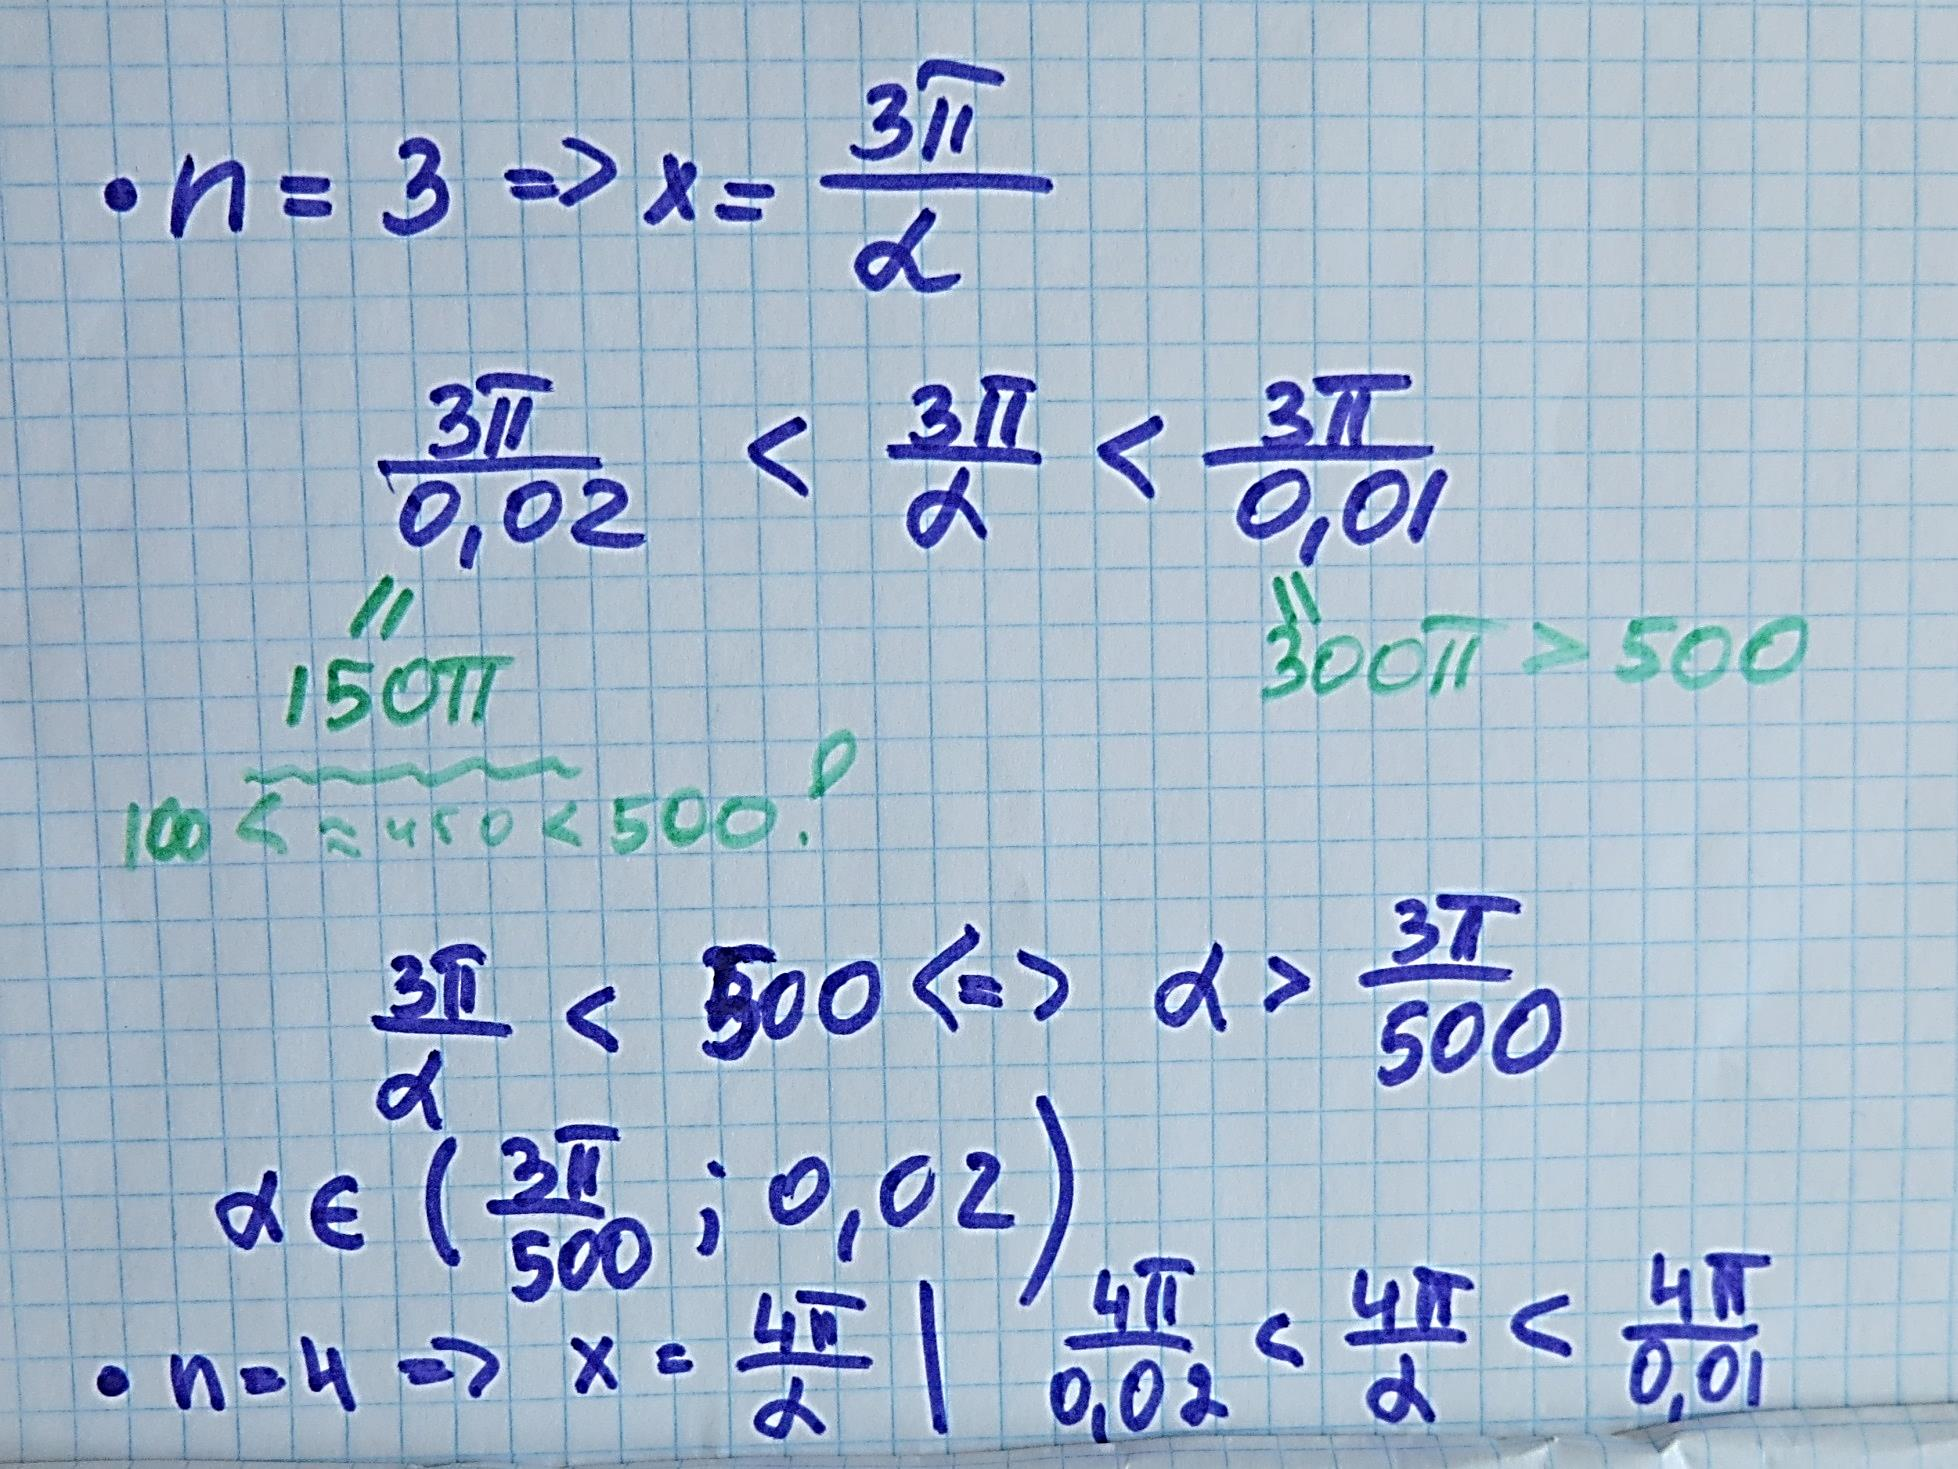 • n = 3 => x = 3π/α
3π/0,02 < 3π/α < 3π/0,01
= 150π = 300π > 500
100 < ≈450 < 500!
3π/α < 500 <=> α > 3π/500
α ∈ (3π/500 ; 0,02)
• n = 4 => x = 4π/α | 4π/0,02 < 4π/α < 4π/0,01